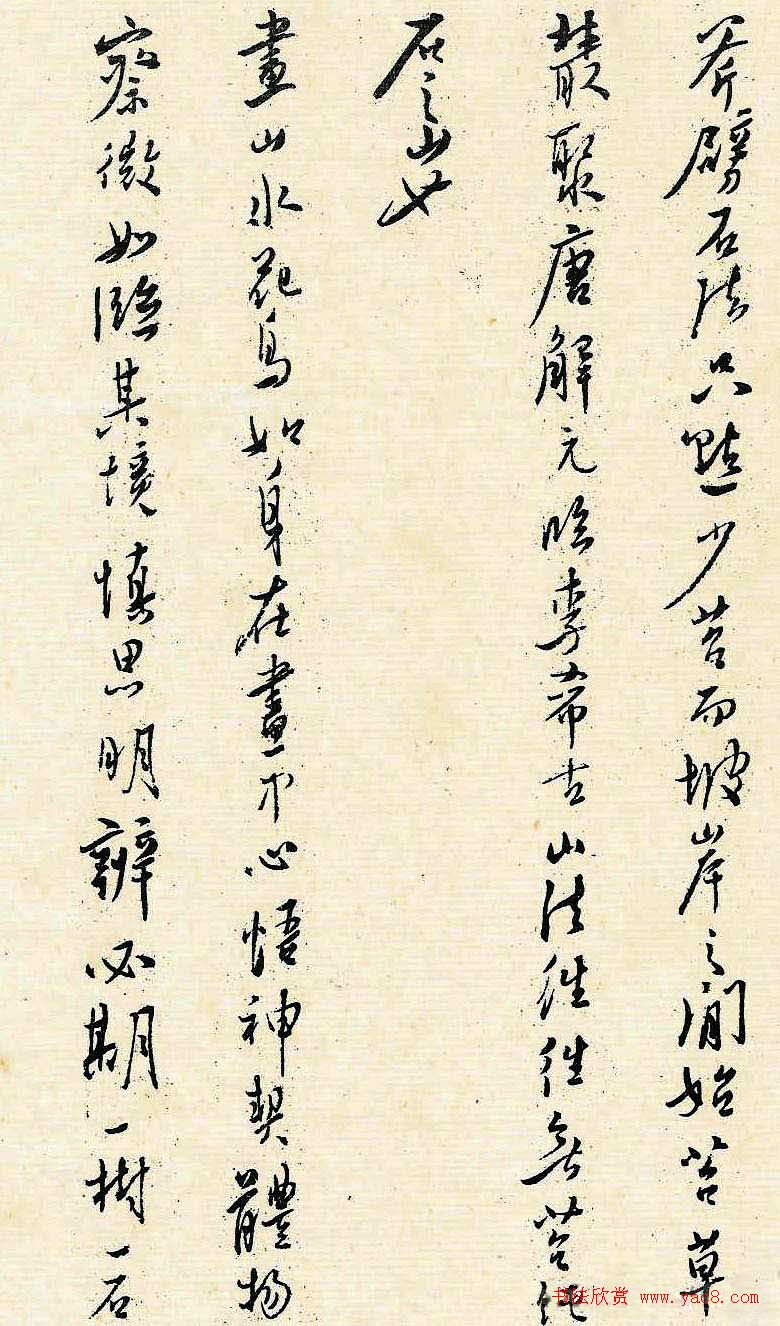 斧劈石法只點少苔而坡岸之間始苔草
叢聚唐解元臨李希古山法往往無苔純
石之山也
畫山水花鳥如身在畫中心悟神契體物
察微如臨其境慎思明辨必期一樹一石
书法欣赏 www.yac8.com